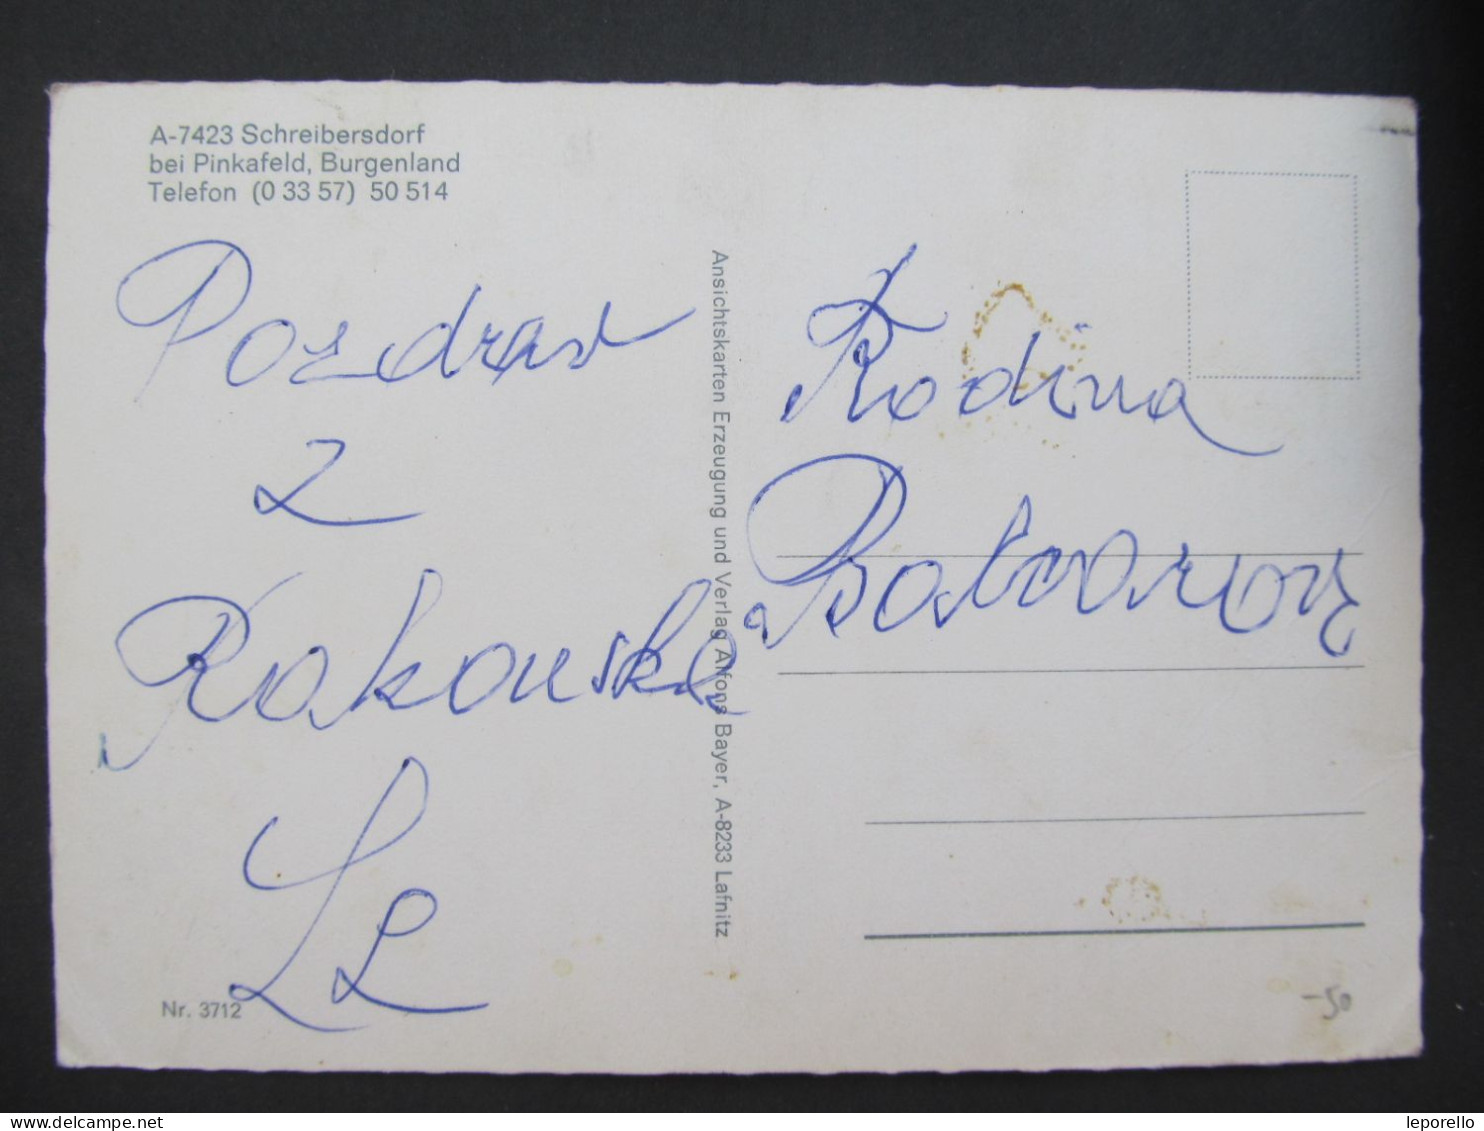 A-7423 Schreibersdorf
bei Pinkafeld, Burgenland
Telefon (0 33 57) 50 514
Pozdrav
z
Rakouska
Ansichtskarten Erzeugung und Verlag Alfons Bayer, A-8233 Lafnitz
Rodina
Nr. 3712
-50
leporello
www.delcampe.net